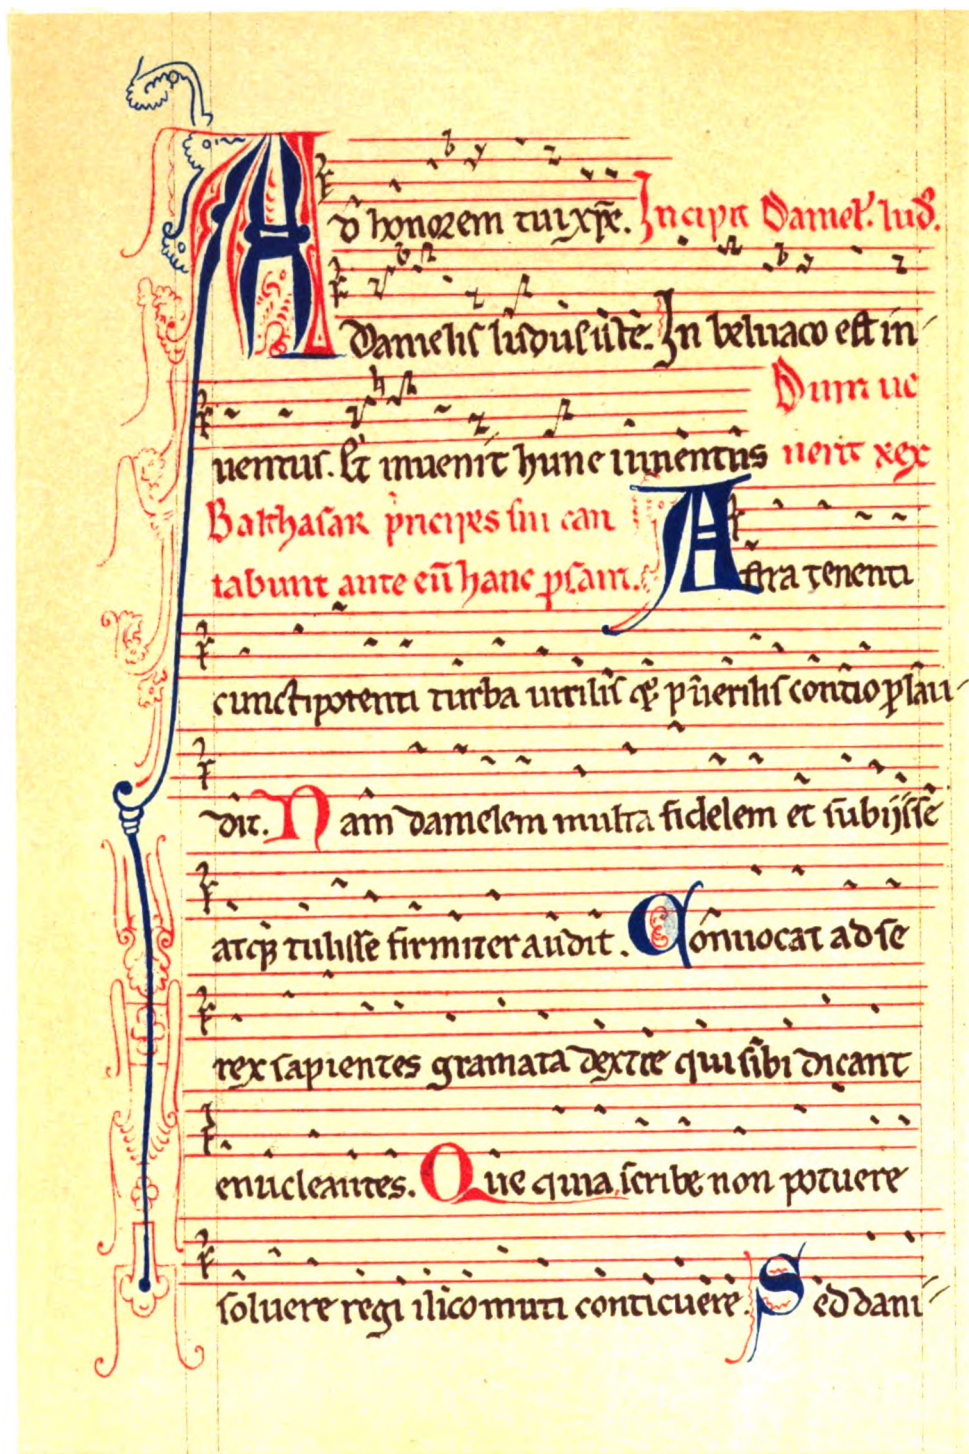 Ad honorem tui xp̄e. Incipit Daniel̕. lud̕.
Danielis ludus iste. In beluaco est in-
Dum ue
uentus. Et inuenit hunc iuuentus nerit rex
Balthasar p̄ncipes sui can
tabunt ante eū hanc p̄sam. Astra tenenti
cunctipotenti turba uirilis q̄ꝫ puerilis contio plau-
dit. Nam danielem multa fidelem et subiisse
atqꝫ tulisse firmiter audit. Conuocat ad se
rex sapientes gramata dextre qui sibi dicant
enucleantes. Que quia scribe non potuere
soluere regi ilico muti conticuere. Sed dani-